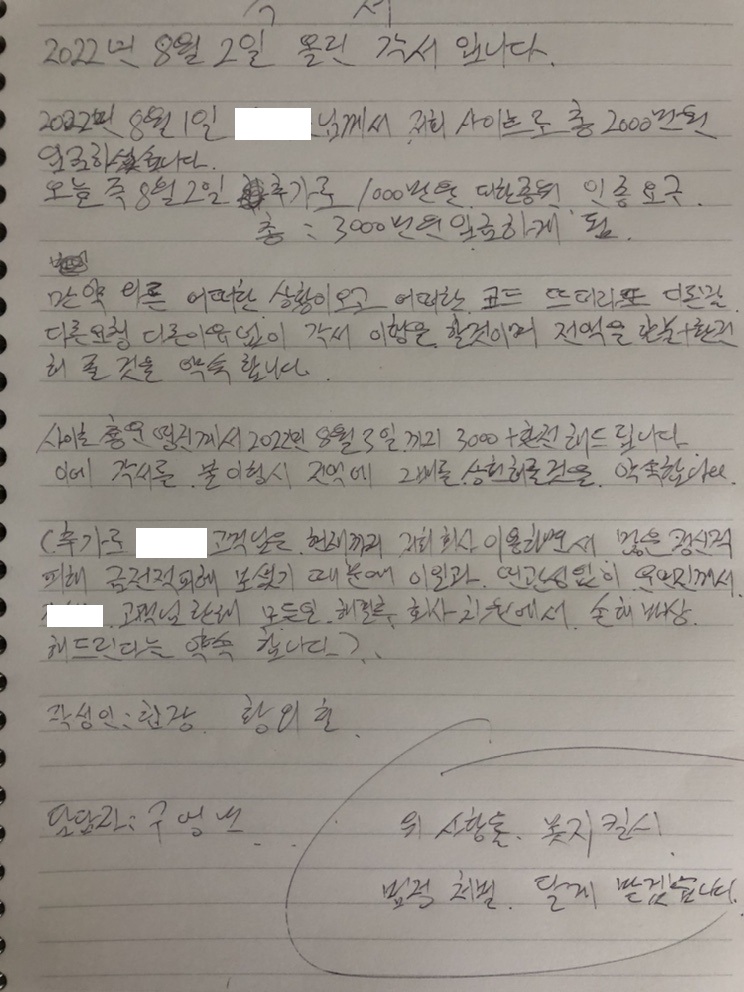 각 서
2022년 8월 2일 올린 각서 입니다.
2022년 8월 1일 님께서 저희 사이트로 총 2000만원
입금하셨습니다.
오늘 즉 8월 2일 추가로 1000만원을 대한 인증요구.
총 : 3000만원 입금하게 됨.
만약 어떠한 상황이오고 어떠한 코드 뜨더라도 다른말
다른요청 다른이유없이 각서 이행을 할것이며 전액을 환불+환전
해 줄 것을 약속 합니다.
사이트 운영진께서 2022년 8월 3일까지 3000+환전 해드립니다.
이에 각서를 불이행시 전액에 2배를 상환해줄것을 약속합니다.
(추가로 고객님은 현재까지 저희회사 이용하면서 많은 정신적
피해 금전적피해 보셨기 때문에 이일과 연관성없이 운영진께서
고객님한테 모든일 해결후 회사 차원에서 손해배상
해드린다는 약속 합니다.)
작성인: 팀장
담당자: 구
위 사항들 못지킬시
법적 처벌 달게 받겠습니다.